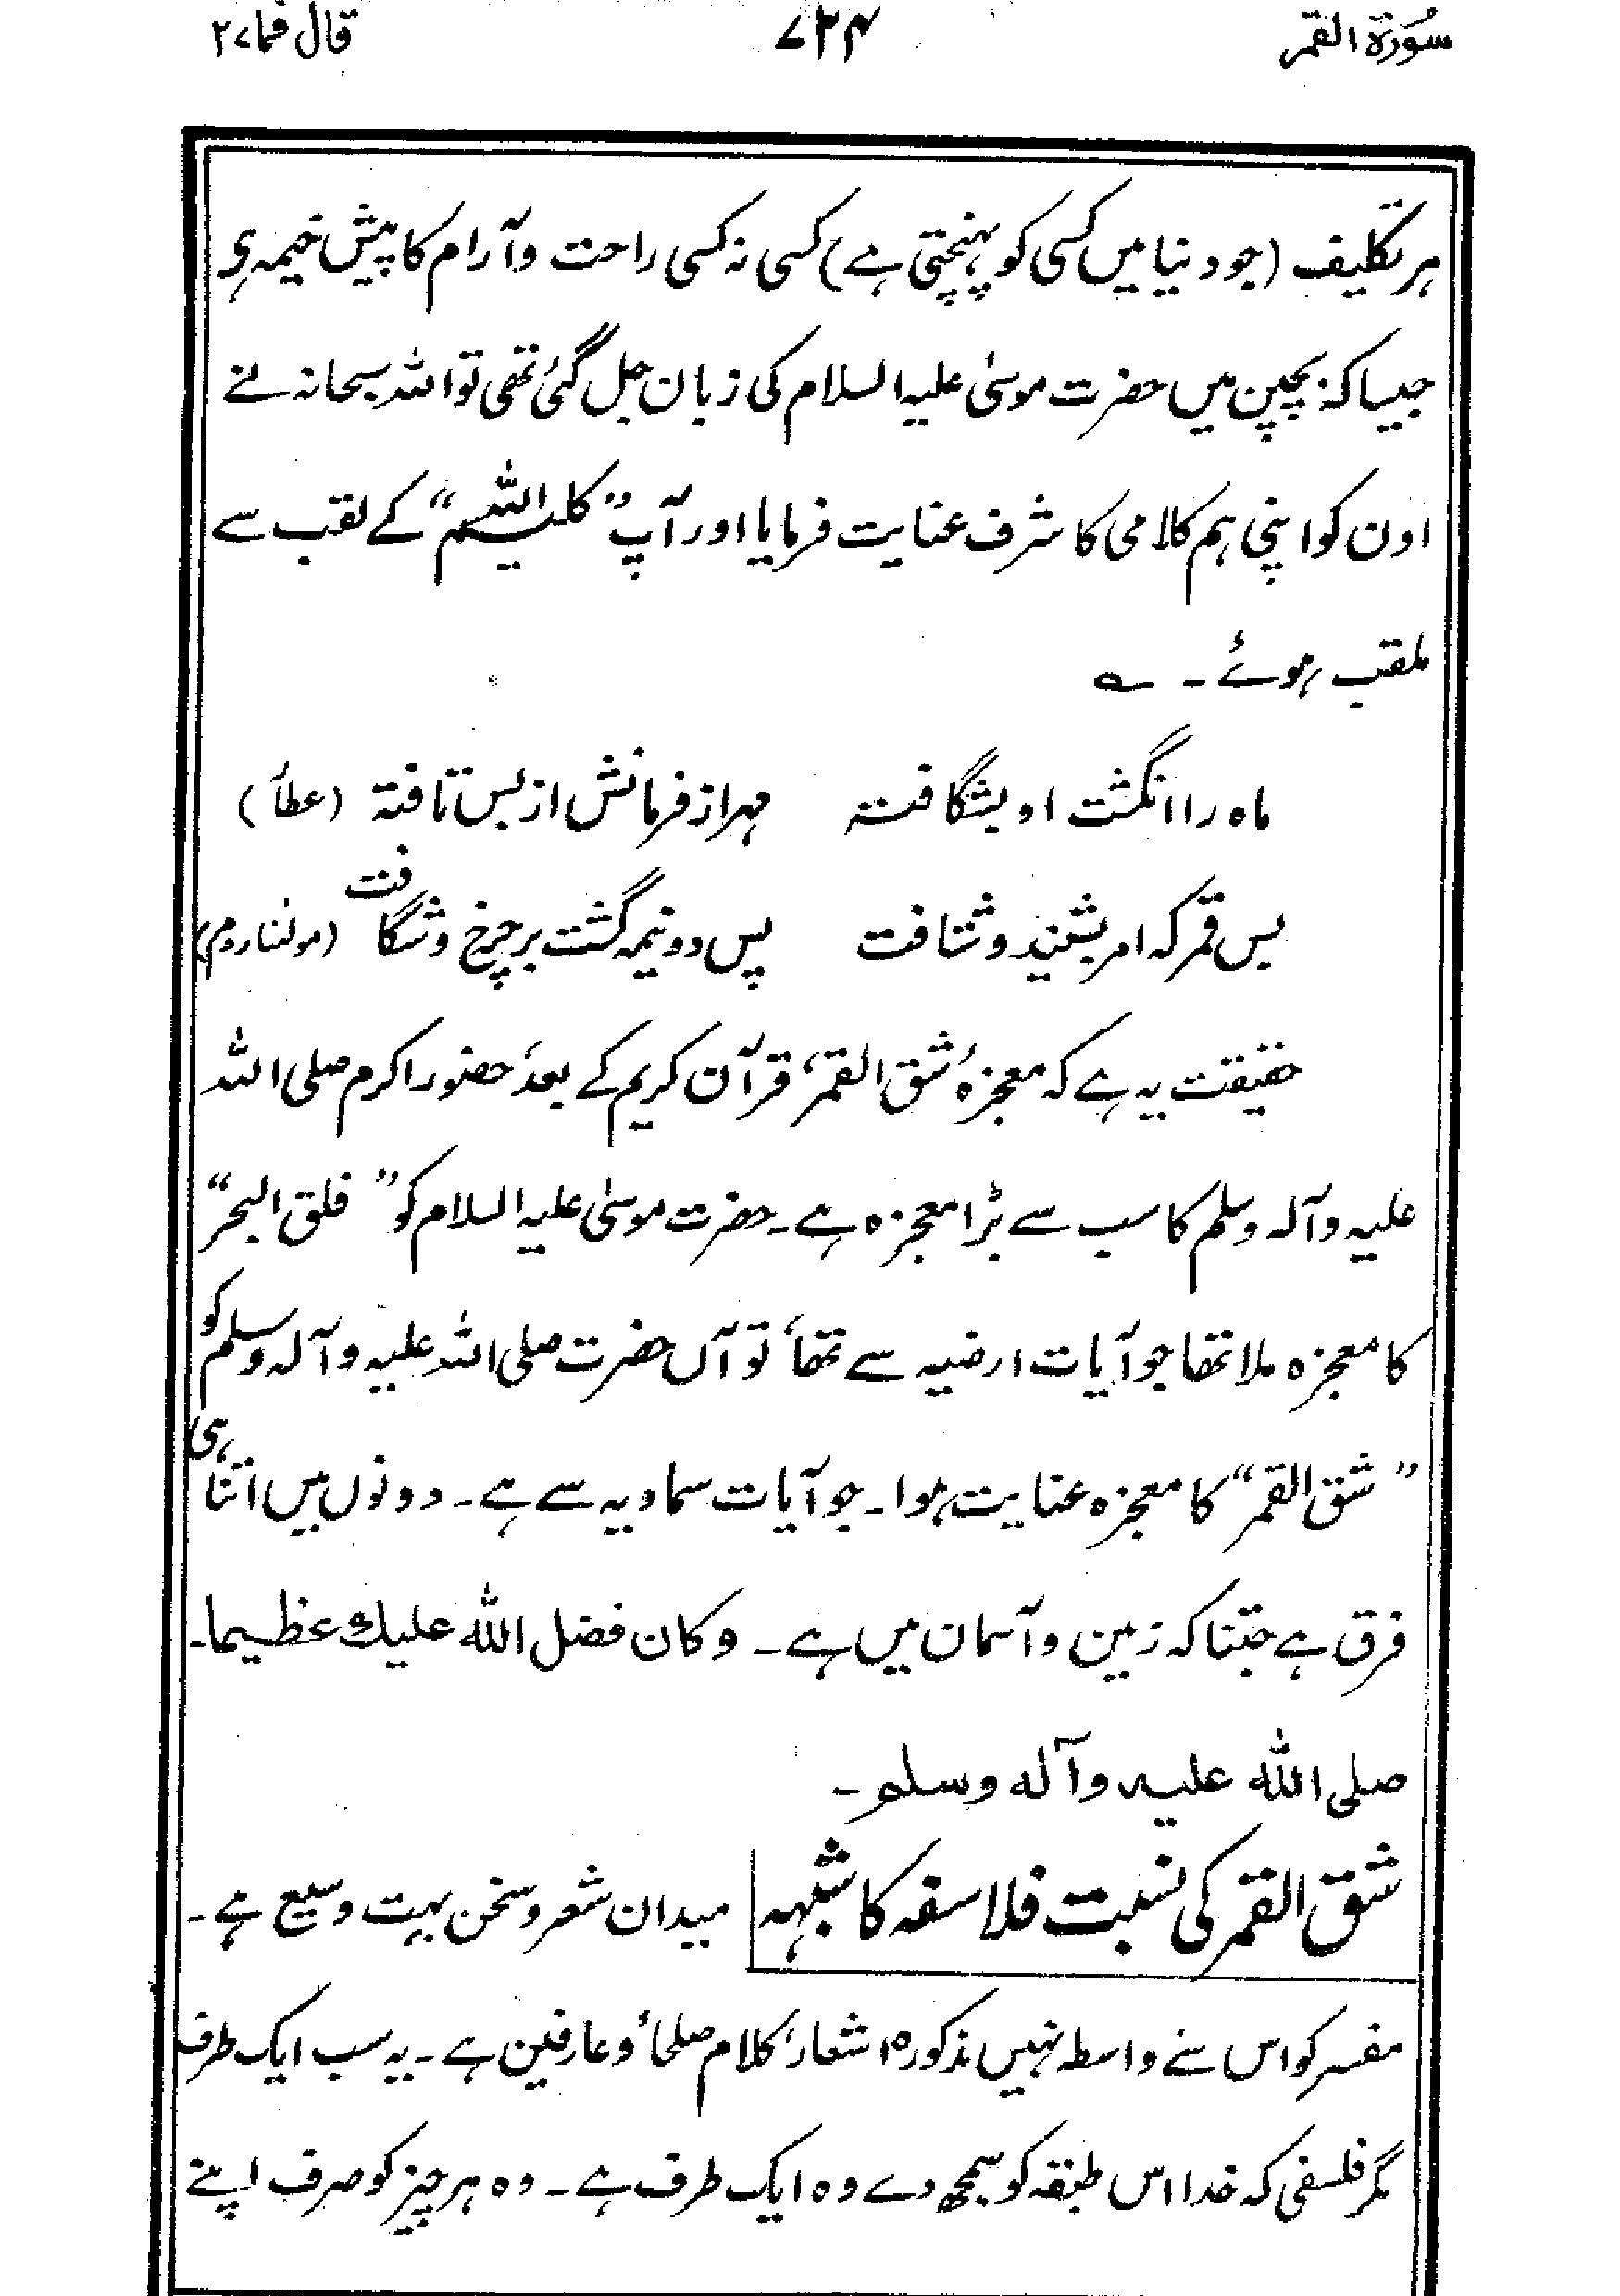 سُورَۃ القمر ۷۳۴ قال فما ۲۷
ہر تکلیف (جو دنیا میں کسی کو پہنچتی ہے) کسی نہ کسی راحت و آرام کا پیش خیمہ ہی
جیسا کہ بچپن میں حضرت موسیٰ علیہ السلام کی زبان جل گئی تھی تو اللہ سبحانہ نے
اون کو اپنی ہم کلامی کا شرف عنایت فرمایا اور آپ ”کلیم اللہ“ کے لقب سے
ملقب ہوئے ۔ ؎
ماہ را انگشت او بشگافتہ مہر از فرمانش از پس تافتہ (عطأ)
بس قمر کہ امر بشنید و شتافت پس دو نیمہ گشت بر چرخ و شگافت (مولٰنا روم)
حقیقت یہ ہے کہ معجزۂ شق القمر، قرآن کریم کے بعد، حضور اکرم صلی اللہ
علیہ و آلہ وسلم کا سب سے بڑا معجزہ ہے ۔ حضرت موسیٰ علیہ السلام کو ”فلق البحر“
کا معجزہ ملا تھا جو آیات ارضیہ سے تھا، تو آں حضرت صلی اللہ علیہ و آلہ وسلم کو
”شق القمر“ کا معجزہ عنایت ہوا ۔ جو آیات سماویہ سے ہے ۔ دونوں میں اتنا ہی
فرق ہے جتنا کہ زمین و آسمان میں ہے ۔ وکان فضل اللہ علیك عظیما ۔
صلی اللہ علیہ وآلہ وسلم ۔
شق القمر کی نسبت فلاسفہ کا شبہہ میدان شعر و سخن بہت وسیع ہے ۔
مفسر کو اس سے واسطہ نہیں مذکورہ اشعار، کلام صلحأ و عارفین ہے ۔ یہ سب ایک طرف
مگر فلسفی کہ خدا اس طبقہ کو سمجھ دے وہ ایک طرف ہے ۔ وہ ہر چیز کو صرف اپنے